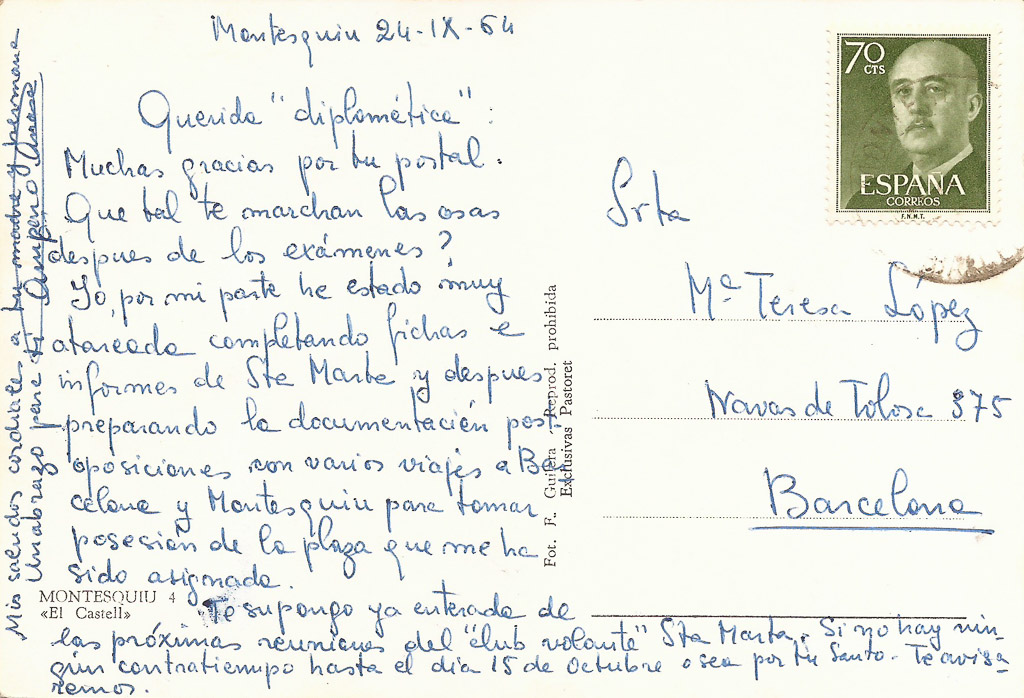 Montesquiu 24-IX-64
Querida "diplomética":
Muchas gracias por tu postal.
Que tal te marchan las osas
despues de los exámenes?
Yo, por mi parte he estado muy
atareada completando fichas e
informes de Sta Marta y despues
preparando la documentación post-
oposiciones con varios viajes a Bar
celona y Montesquiu para tomar
posesión de la plaza que me ha
sido asignada.
Te supongo ya enterada de
las próximas reuniones del "club volante" Sta Marta. Si no hay nin-
gún contratiempo hasta el día 15 de Octubre o sea por tu Santo. Te avisa
remos.
Mis saludos cordiales a tu madre y hermana
Un abrazo para ti
MONTESQUIU 4
«El Castell»
Fot. F. Guilera Reprod. prohibida
Exclusivas Pastoret
70
CTS
ESPAÑA
CORREOS
F.N.M.T.
Srta
Mª Teresa López
Navas de Tolosa 375
Barcelona